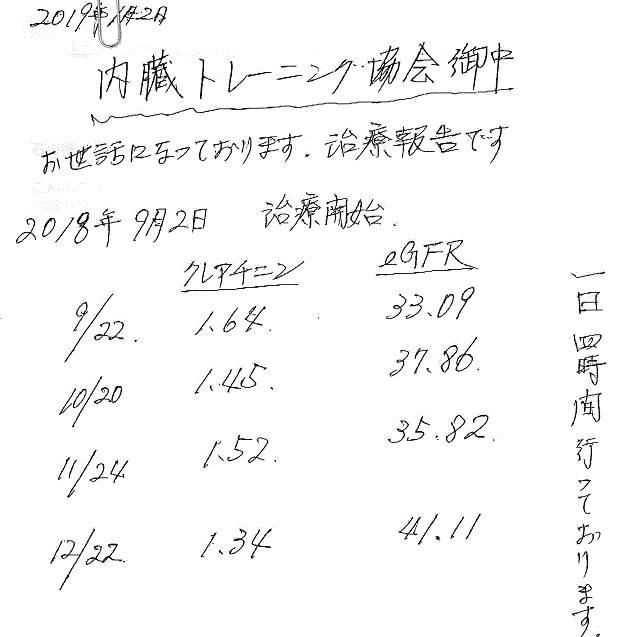 2019年1月2日
内臓トレーニング協会御中
お世話になっております. 治療報告です
2018年9月2日 治療開始.
クレアチニン eGFR
9/22. 1.64. 33.09
10/20 1.45. 37.86.
11/24 1.52. 35.82.
12/22. 1.34 41.11
一日四時間行っております.